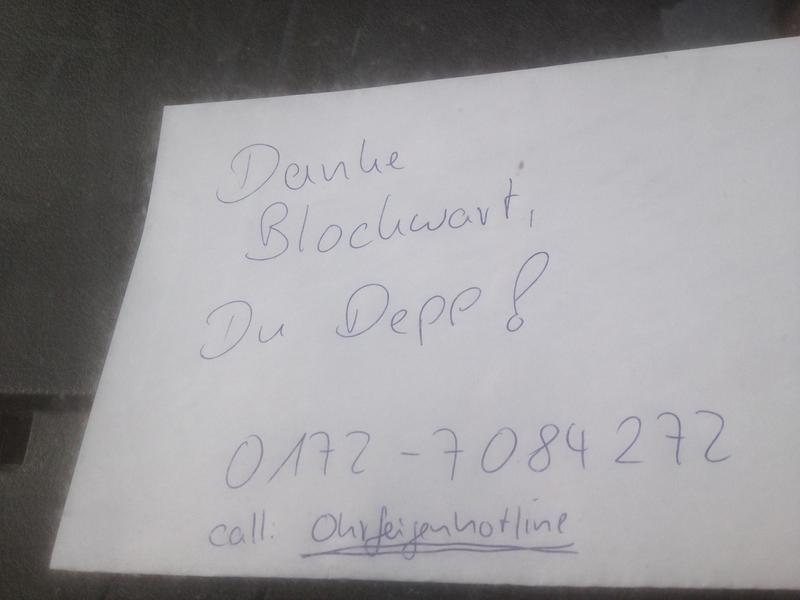 Danke
Blockwart,
Du Depp!
0172-7084272
call: Ohrfeigenhotline